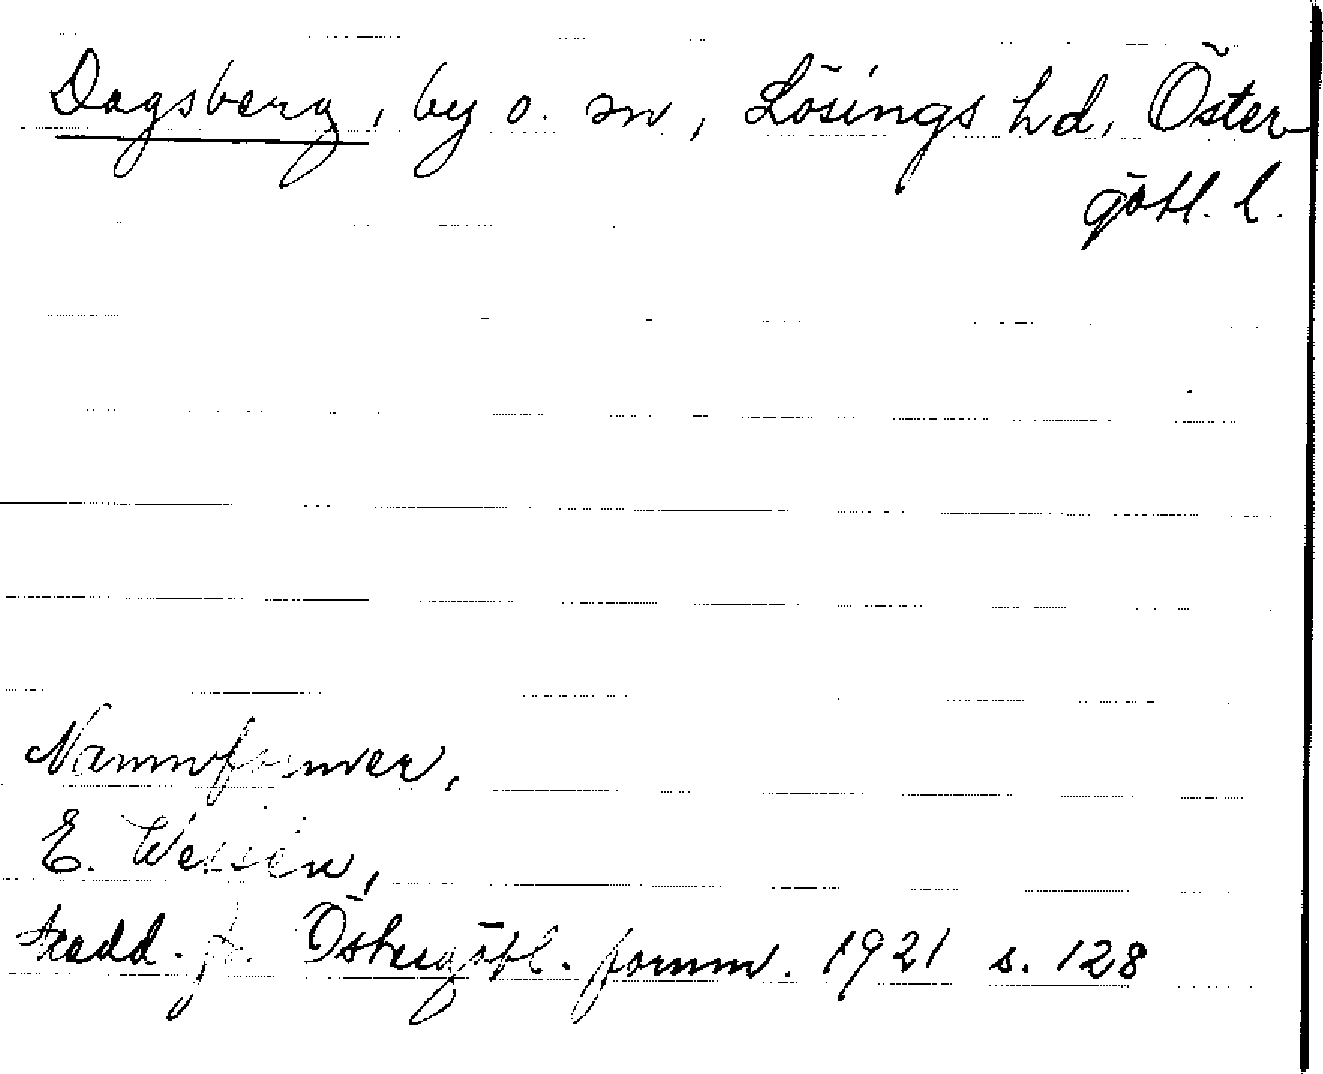 Dagsberg, by o. sn, Lösings hd, Öster-
götl. l.
Namnformer,
E. Wessén,
Medd. fr. Östergötl. fornm. 1921 s. 128